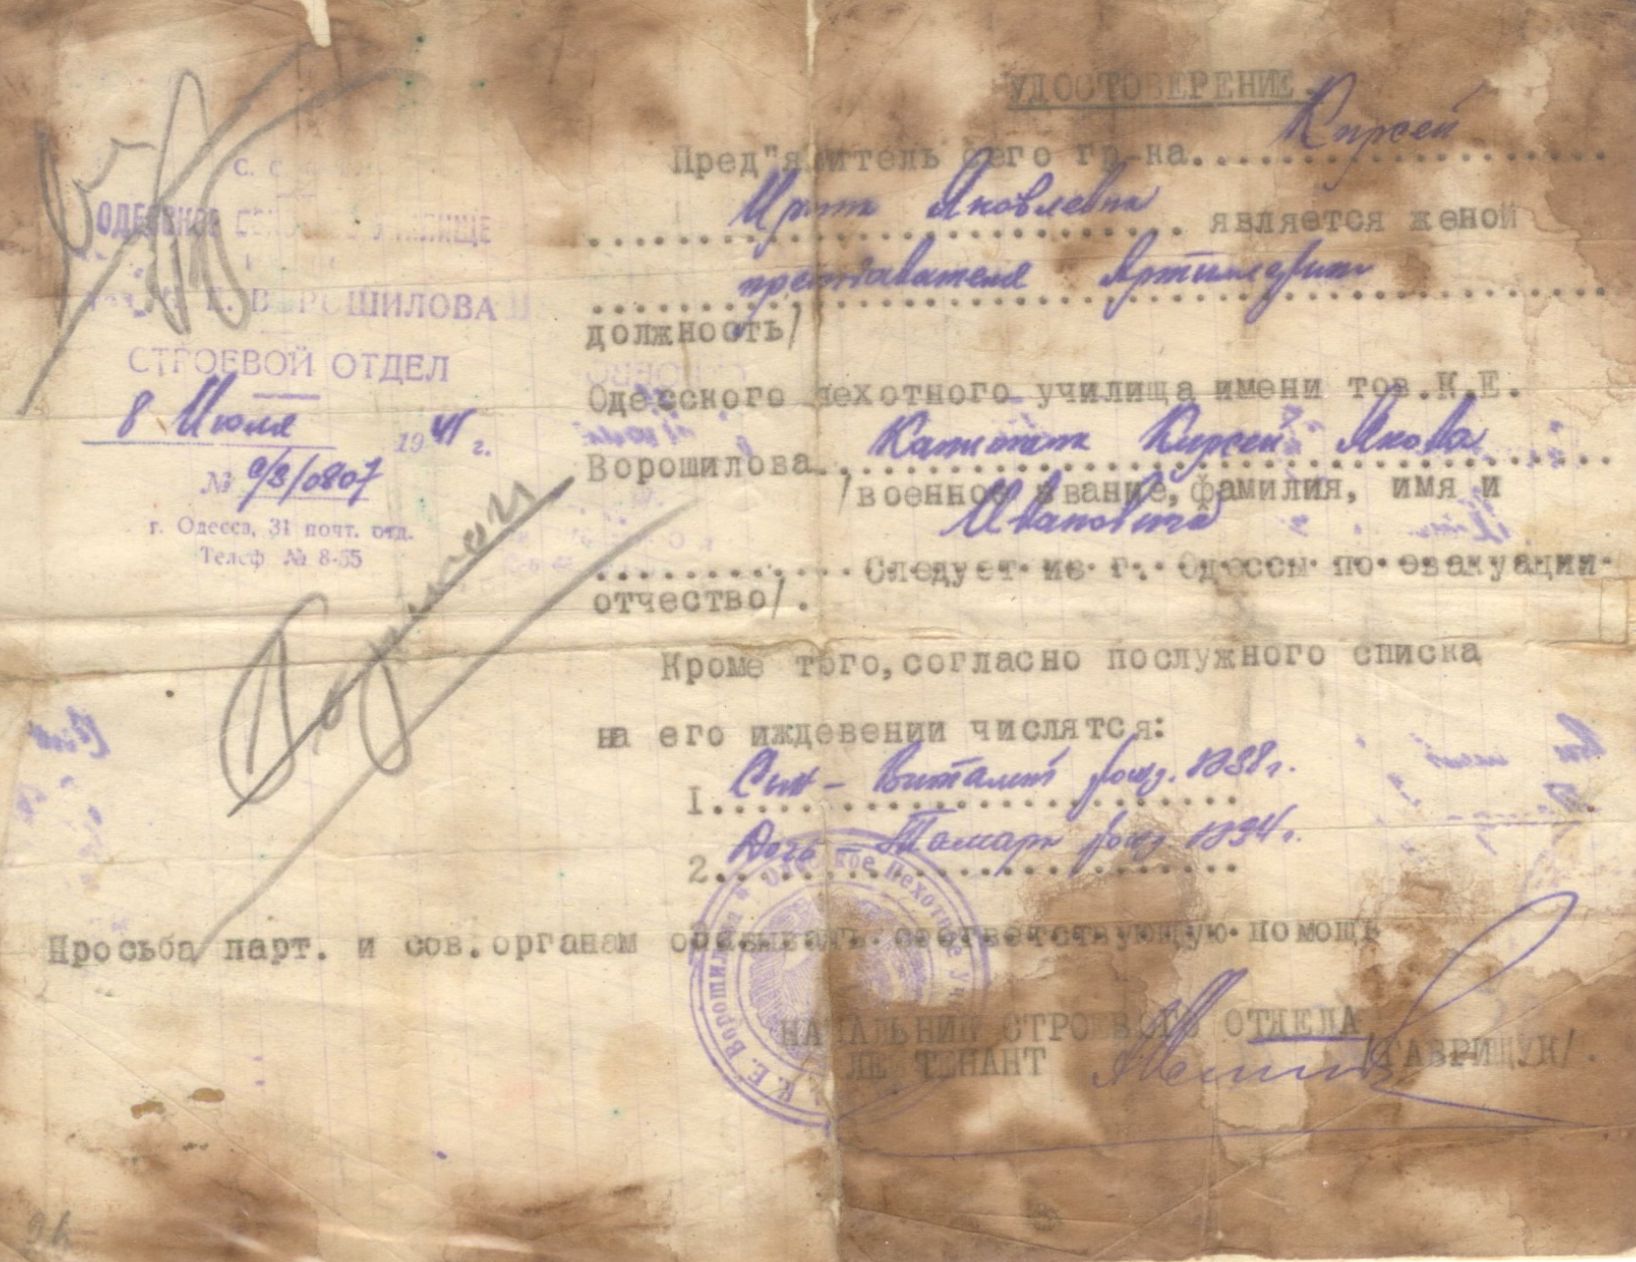 УДОСТОВЕРЕНИЕ.
Пред"явитель сего гр-ка Кирсей
Ирина Яковлевна является женой
преподавателя Артиллерии
должность/
Одесского пехотного училища имени тов.К.Е.
Ворошилова Капитана Кирсей Якова
/военное звание, фамилия, имя и
Ивановича
Следует из г. Одессы по эвакуации
отчество/.
Кроме того, согласно послужного списка
на его иждевении числятся:
1. Сын - Виталий рожд. 1938 г.
2. Дочь - Тамара рожд 1934 г.
Просьба парт. и сов.органам оказывать соответствующую помощь
НАЧАЛЬНИК СТРОЕВОГО ОТДЕЛА
ЛЕЙТЕНАНТ /ГАВРИЩУК/.
ОДЕССКОЕ УЧИЛИЩЕ
К. Е. ВОРОШИЛОВА
СТРОЕВОЙ ОТДЕЛ
8 Июля 1941 г.
№ 9/3/0807
г. Одесса, 31 почт. отд.
Телеф № 8-55
Одесское пехотное К. Е. Ворошилова